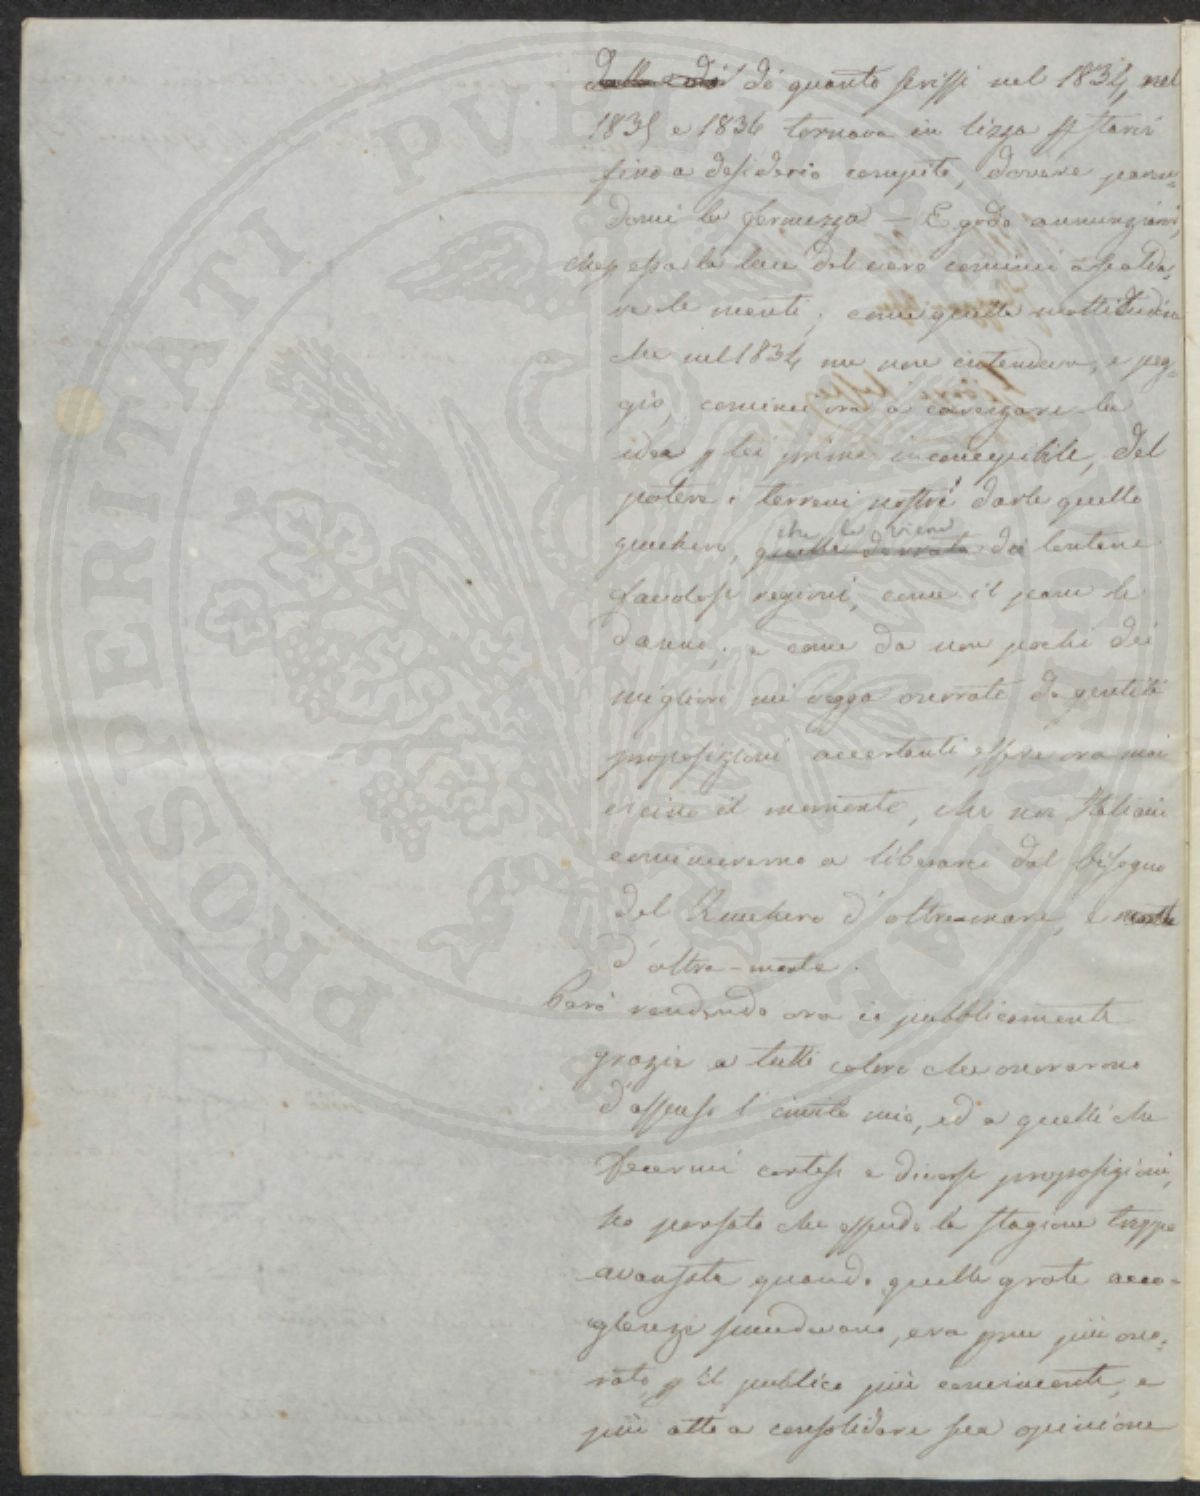 di quanto scrissi nel 1834, nel
1835 e 1836 tornava in lizza p starvi
fino a desiderio compito, dovere paren-
domi la fermezza — E godo annunziarvi,
che la luce del vero cominci a scalda-
re le mente; come quella moltitudine
che nel 1834 me non intendeva, e peg-
gio, cominci ora a carezzare la
idea p lei prima inconcepibile, del
potere i terreni nostri darle quello
zucchero, che le viene da lontane
favolose regioni, come il pane le
danno; e come da non pochi dei
migliori mi vegga onorato di gentili
proposizioni accertanti essere ora mai
vicino il momento, che noi Italiani
cominceremo a liberarci dal bisogno
del Zucchero d'oltre-mare, e
d'oltre-monte.
Però rendendo ora io pubblicamente
grazie a tutti coloro che onorarono
d'assenso l'invito mio, ed a quelli che
fecermi cortesi e diverse proposizioni,
ho pensato che essendo la stagione troppo
avanzata quando quelle grate acco-
glienze succedevano, era più ono-
rato, p il publico più convincente, e
più atto a consolidare sua opinione
PROSPERITATI PVBLICAE